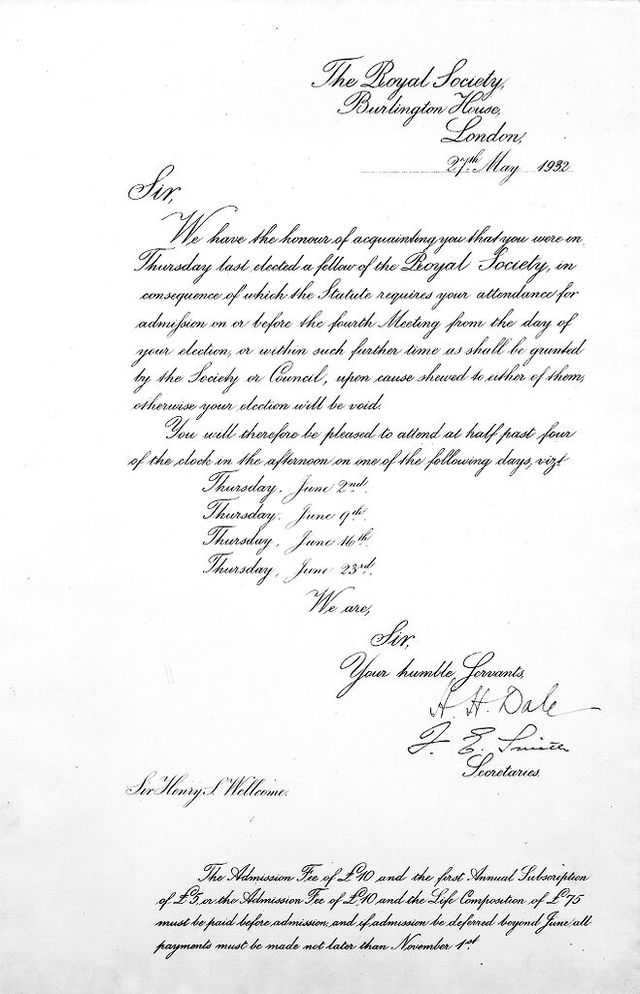 The Royal Society,
Burlington House,
London,
27th May 1932
Sir,
We have the honour of acquainting you that you were on
Thursday last elected a fellow of the Royal Society, in
consequence of which the Statute requires your attendance for
admission on or before the fourth Meeting from the day of
your election, or within such further time as shall be granted
by the Society or Council, upon cause shewed to either of them,
otherwise your election will be void.
You will therefore be pleased to attend at half past four
of the clock in the afternoon on one of the following days, vizt
Thursday. June 2nd.
Thursday. June 9th.
Thursday, June 16th.
Thursday, June 23rd.
We are,
Sir,
Your humble Servants,
H. H. Dale
F. E. Smith
Secretaries.
Sir Henry S. Wellcome.
The Admission Fee of £10 and the first Annual Subscription
of £5, or the Admission Fee of £10 and the Life Composition of £75
must be paid before admission, and if admission be deferred beyond June, all
payments must be made not later than November 1st